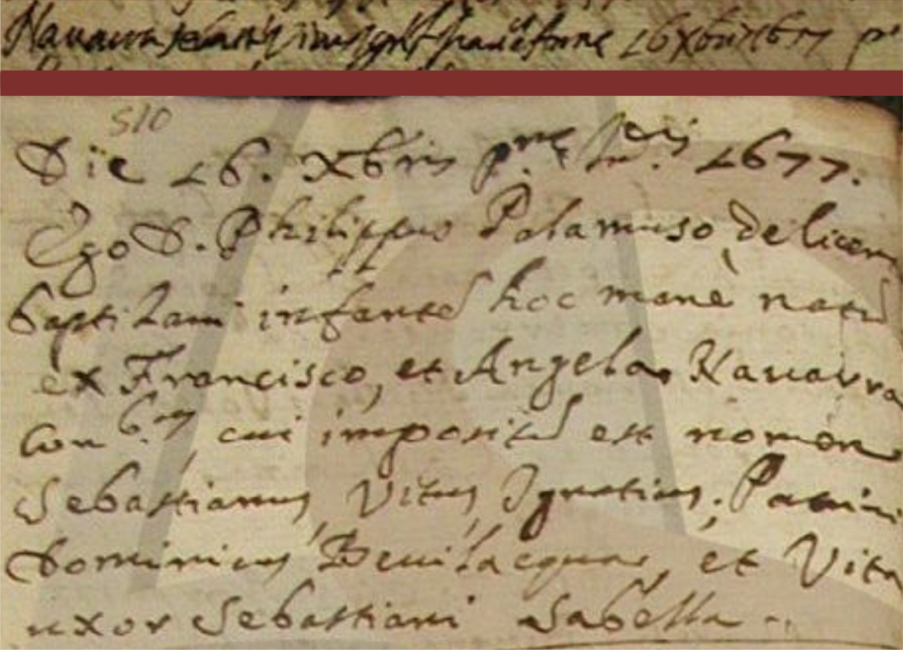 Nauarra Sebast: 16 Xbris 1677
510
Die 16. Xbris p.me Ind.is 1677.
Ego D. Philippus Palamuso, de licen
baptizavi infante hoc mane natu
ex Francisco, et Angela Nauarra
con b.us, cui imposit est nomen
Sebastianus, Vitus, Ignatius. Patrini
Dominicus Beuilacqua, et Vita
uxor Sebastiani Sabella.